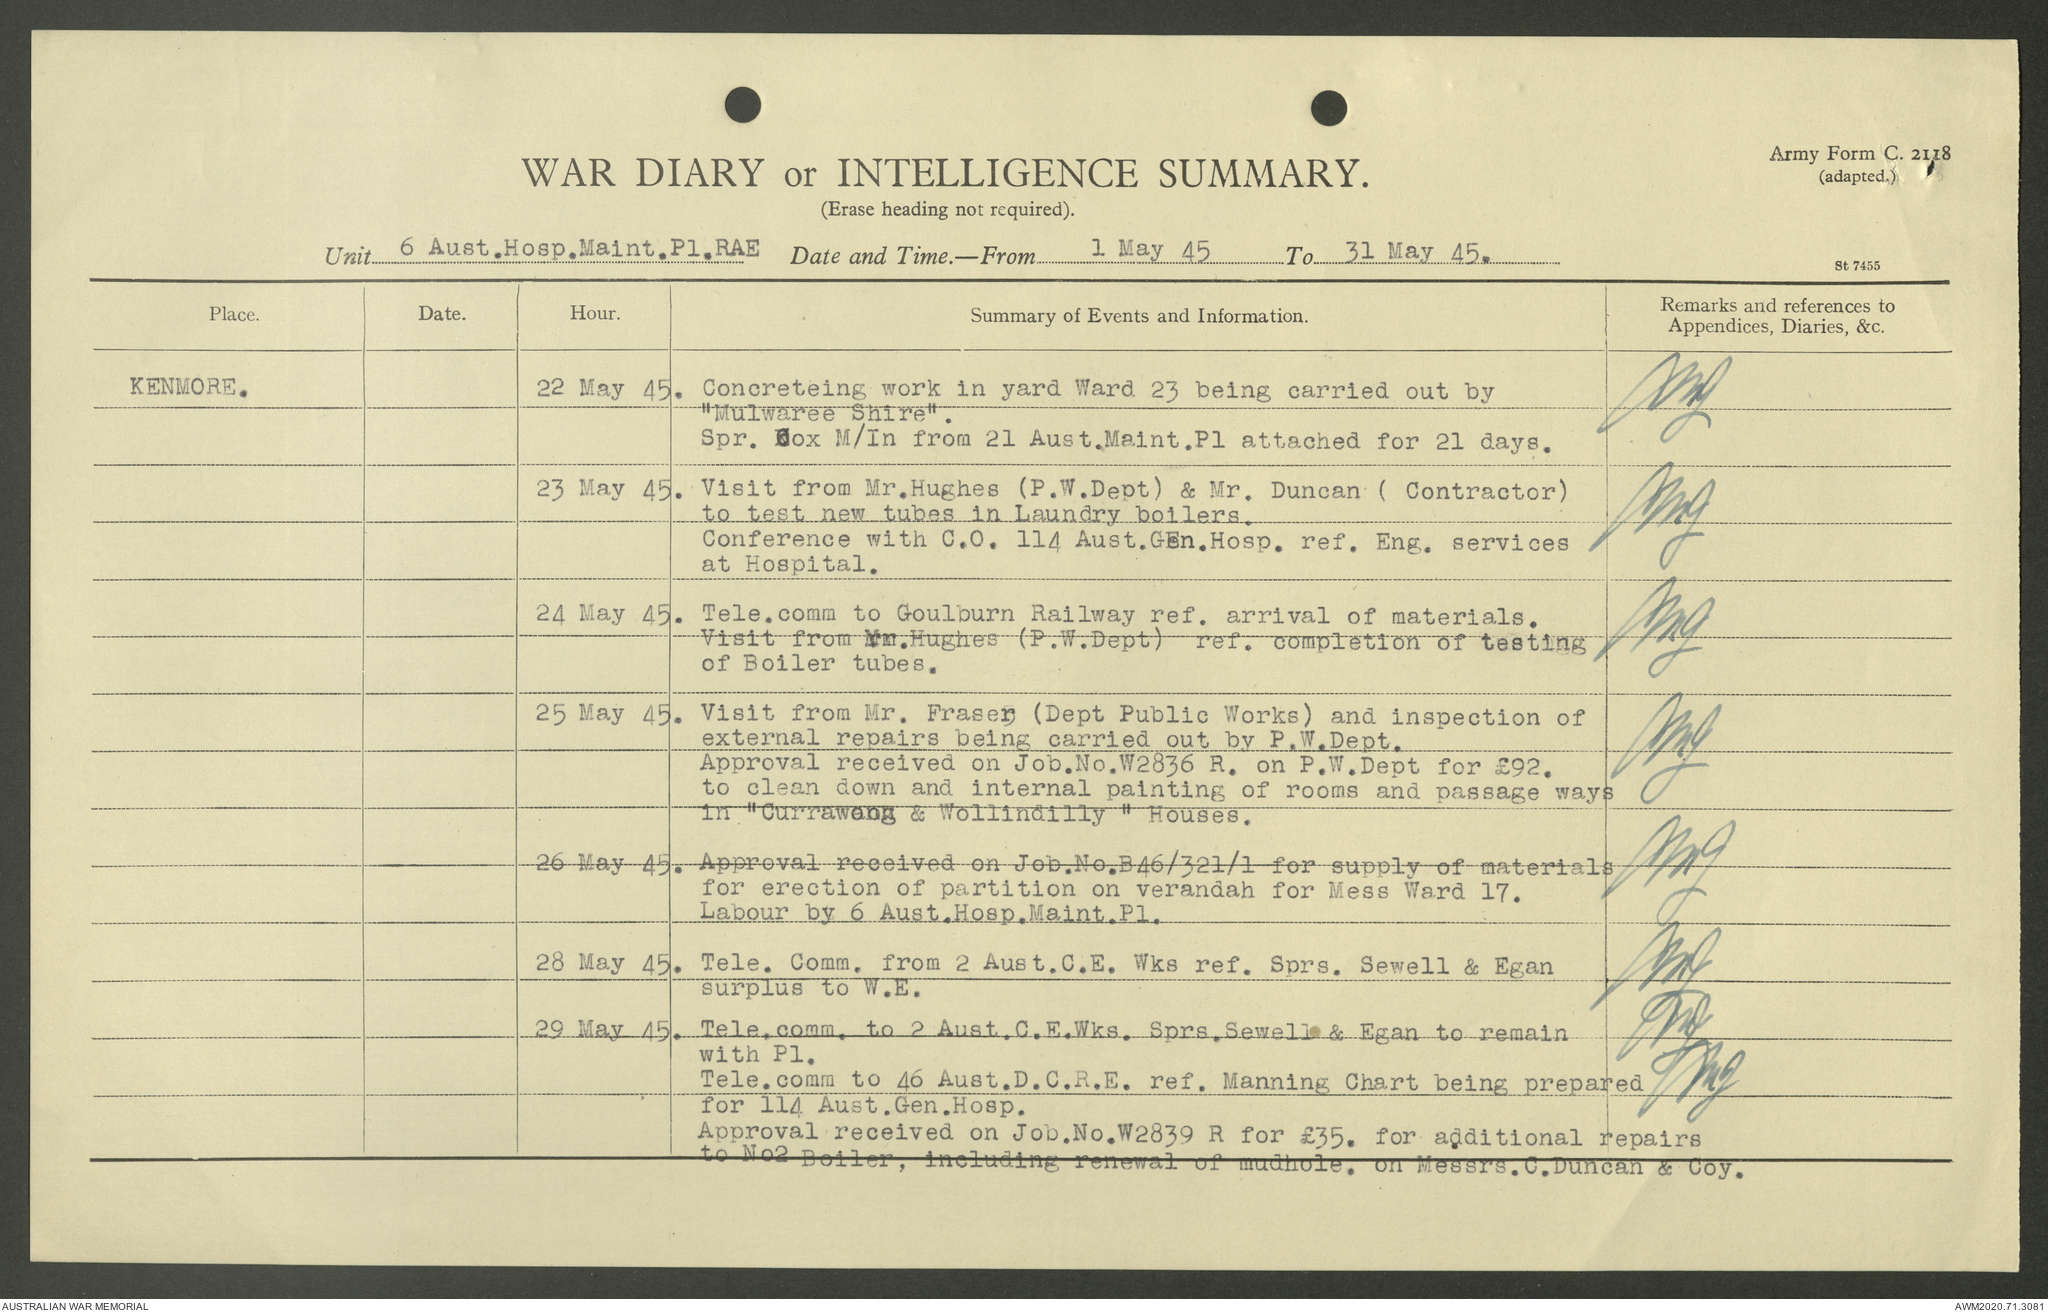 WAR DIARY or INTELLIGENCE SUMMARY.
(Erase heading not required).
Army Form C. 2118
(adapted.)
Unit 6 Aust.Hosp.Maint.Pl.RAE Date and Time.—From 1 May 45 To 31 May 45.
St 7455
Place. Date. Hour. Summary of Events and Information. Remarks and references to
Appendices, Diaries, &c.
KENMORE. 22 May 45. Concreteing work in yard Ward 23 being carried out by
"Mulwaree Shire".
Spr. Cox M/In from 21 Aust.Maint.Pl attached for 21 days.
23 May 45. Visit from Mr.Hughes (P.W.Dept) & Mr. Duncan ( Contractor)
to test new tubes in Laundry boilers.
Conference with C.O. 114 Aust.GEn.Hosp. ref. Eng. services
at Hospital.
24 May 45. Tele.comm to Goulburn Railway ref. arrival of materials.
Visit from Mr.Hughes (P.W.Dept) ref. completion of testing
of Boiler tubes.
25 May 45. Visit from Mr. Fraser (Dept Public Works) and inspection of
external repairs being carried out by P.W.Dept.
Approval received on Job.No.W2836 R. on P.W.Dept for £92.
to clean down and internal painting of rooms and passage ways
in "Currawang & Wollindilly " Houses.
26 May 45. Approval received on Job.No.B46/321/1 for supply of materials
for erection of partition on verandah for Mess Ward 17.
Labour by 6 Aust.Hosp.Maint.Pl.
28 May 45. Tele. Comm. from 2 Aust.C.E. Wks ref. Sprs. Sewell & Egan
surplus to W.E.
29 May 45. Tele.comm. to 2 Aust.C.E.Wks. Sprs.Sewell & Egan to remain
with Pl.
Tele.comm to 46 Aust.D.C.R.E. ref. Manning Chart being prepared
for 114 Aust.Gen.Hosp.
Approval received on Job.No.W2839 R for £35. for additional repairs
to No2 Boiler, including renewal of mudhole. on Messrs.C.Duncan & Coy.
AUSTRALIAN WAR MEMORIAL
AWM2020.71.3081